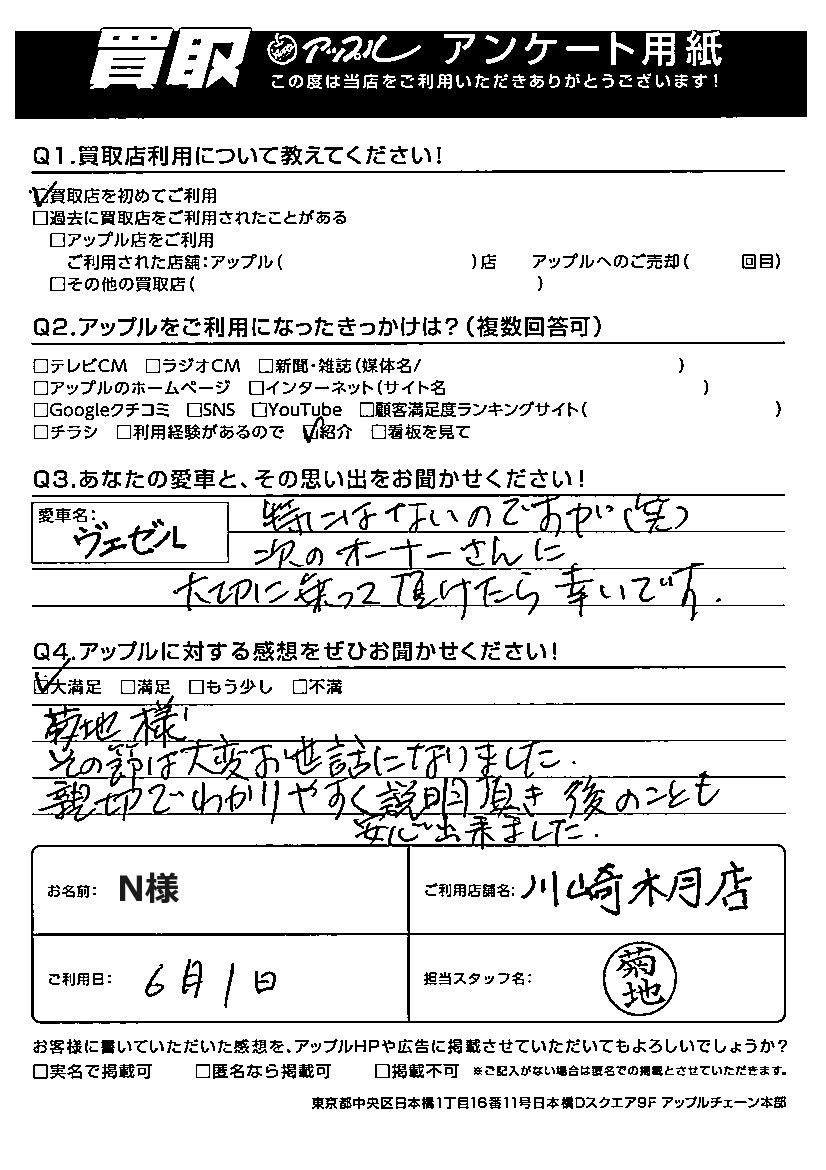 買取 アップル アンケート用紙
この度は当店をご利用いただきありがとうございます!
Q1.買取店利用について教えてください!
☑買取店を初めてご利用
□過去に買取店をご利用されたことがある
□アップル店をご利用
ご利用された店舗:アップル( )店 アップルへのご売却( 回目)
□その他の買取店( )
Q2.アップルをご利用になったきっかけは?(複数回答可)
□テレビCM □ラジオCM □新聞・雑誌(媒体名/ )
□アップルのホームページ □インターネット(サイト名 )
□Googleクチコミ □SNS □YouTube □顧客満足度ランキングサイト( )
□チラシ □利用経験があるので ☑紹介 □看板を見て
Q3.あなたの愛車と、その思い出をお聞かせください!
愛車名: ヴェゼル
特にはないのですが(笑)
次のオーナーさんに
大切に乗って頂けたら幸いです.
Q4.アップルに対する感想をぜひお聞かせください!
☑大満足 □満足 □もう少し □不満
菊地様
その節は大変お世話になりました.
親切でわかりやすく説明頂き後のことも
安心出来ました.
お名前: N様 ご利用店舗名: 川崎木月店
ご利用日: 6月1日 担当スタッフ名: 菊地
お客様に書いていただいた感想を、アップルHPや広告に掲載させていただいてもよろしいでしょうか?
□実名で掲載可 □匿名なら掲載可 □掲載不可 ※ご記入がない場合は匿名での掲載とさせていただきます。
東京都中央区日本橋1丁目16番11号日本橋Dスクエア9F アップルチェーン本部